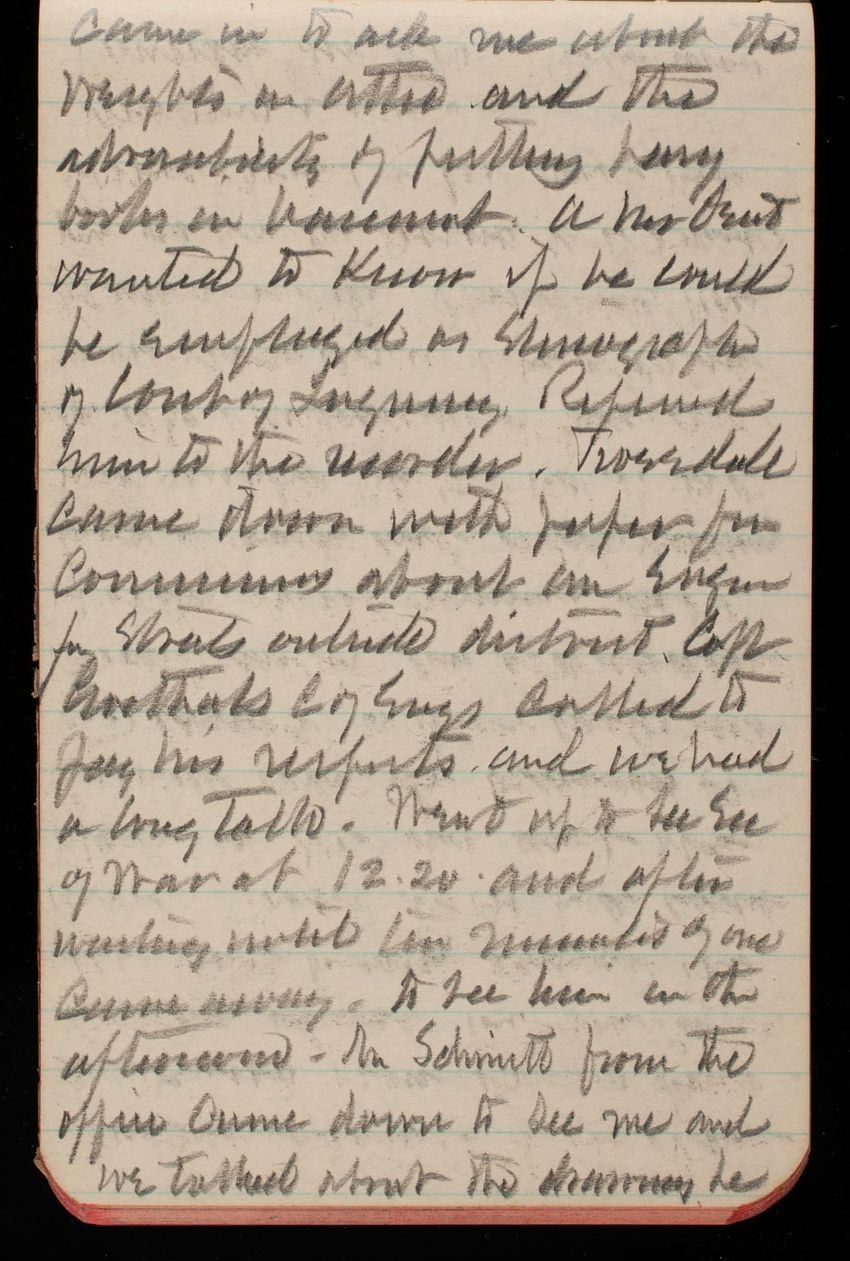 came in to ask me about the
weights in attic and the
advisability of putting heavy
books in basement. A Mr Brut
wanted to know if he could
be employed as Stenographer
of Court of Inquiry. Referred
him to the recorder. Truesdale
came down with paper for
Commrs about an Engine
for Streets outside district. Capt
Goethals C of Engs called to
pay his respects. and we had
a long talk. Went up to see Sec
of War at 12.20. and after
waiting until ten minutes of one
came away. to see him in the
afternoon - Mr Schmitt from the
office came down to see me and
we talked about the drawing he